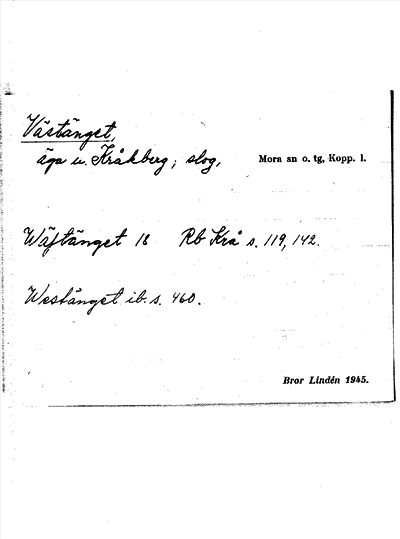 Västänget,
äga u. Kråkberg; slog, Mora sn o. tg, Kopp. l.
Wästänget 18 Rb Krå s. 119, 142.
Westänget ib. s. 460.
Bror Lindén 1945.